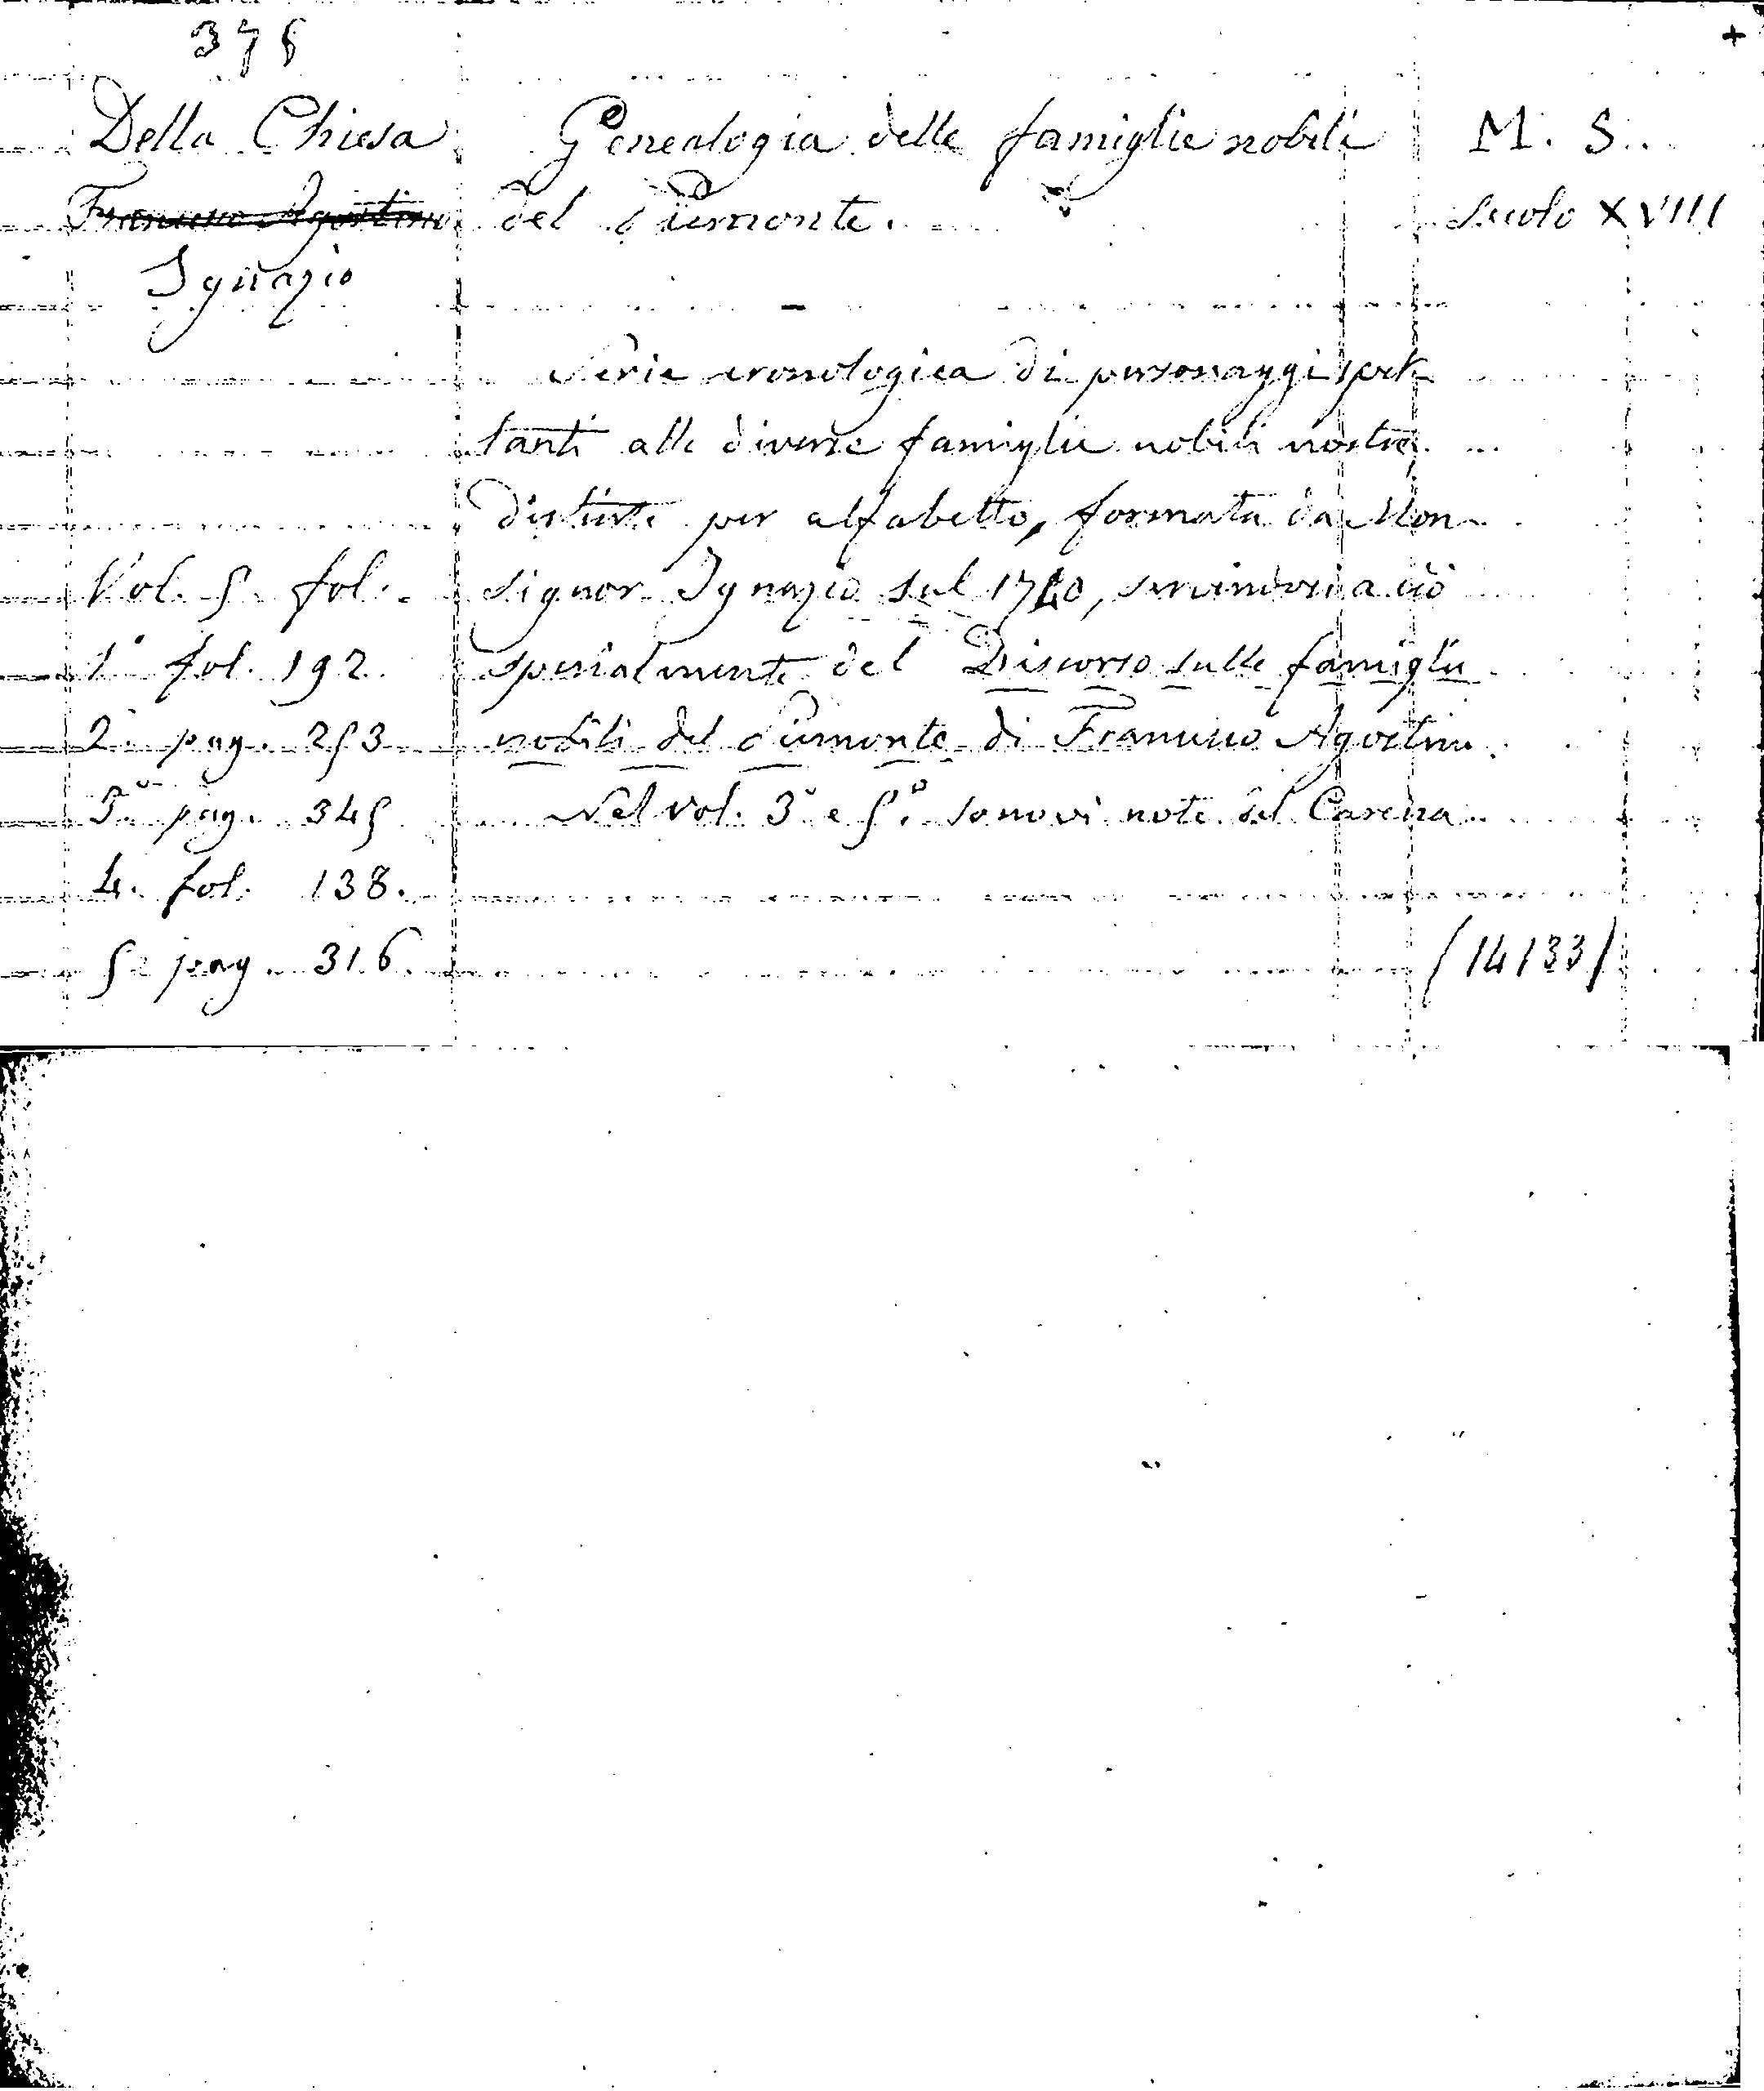 375
+
Della Chiesa
Francesco Agostino
Ignazio
Genealogia delle famiglie nobili
del Piemonte.
M. S.
Secolo XVIII
Serie cronologica di personaggi spet-
tanti alle diverse famiglie nobili nostre,
distinte per alfabetto, formata da Mon-
signor Ignazio sul 1740, servendosi a ciò
specialmente del Discorso sulle famiglie
nobili del Piemonte di Francesco Agostino.
Nel vol. 3° e 5°. sonovi note del Carena.
Vol. 5. fol.
1° fol. 192.
2° pag. 253
3° pag. 345
4. fol. 138.
5° pag. 316.
(14133)